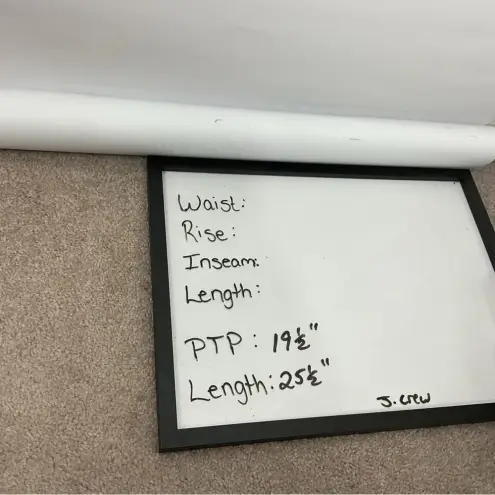 Waist:
Rise:
Inseam:
Length:
PTP: 19½"
Length: 25½"
J. crew